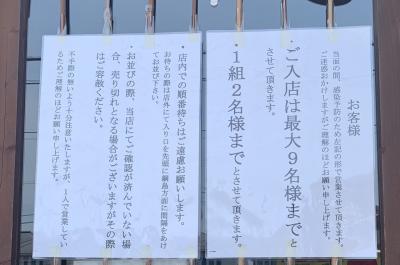 お客様
当面の間、感染予防のため左記の形で営業させて頂きます。
ご迷惑おかけしますがご理解のほどお願い申し上げます。
・ご入店は最大９名様までと
させて頂きます。
・１組２名様までとさせて頂きます。
・店内での順番待ちはご遠慮お願いします。
お待ちの際は店外にて入り口を先頭に綱島方面に間隔をあけ
てお並び下さい。
・お並びの際、当店にてご確認が済んでいない場
合、売り切れとなる場合がございますがその際
はご容赦ください。
不手際の無いよう十分注意いたしますが、１人で営業してい
るためご理解のほどお願い申し上げます。